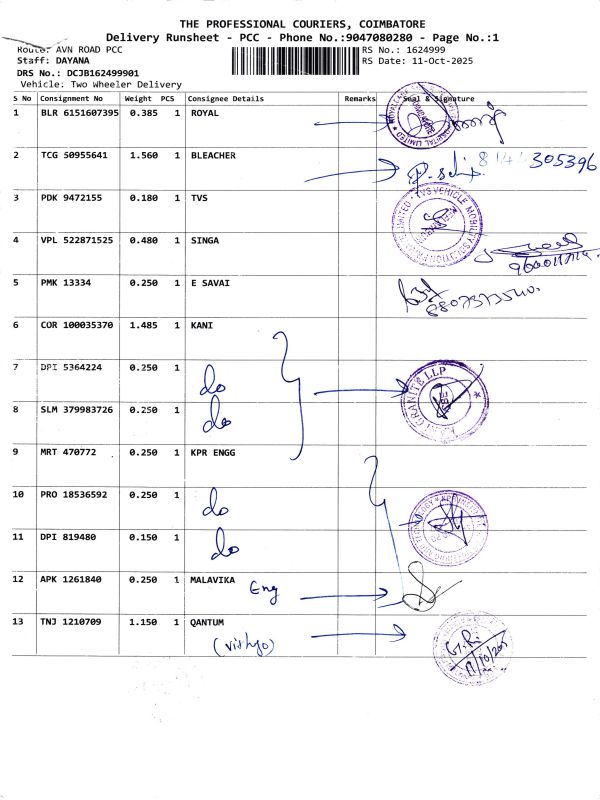 THE PROFESSIONAL COURIERS, COIMBATORE
Delivery Runsheet - PCC - Phone No.:9047080280 - Page No.:1
Route: AVN ROAD PCC
RS No.: 1624999
Staff: DAYANA
RS Date: 11-Oct-2025
DRS No.: DCJB162499901
Vehicle: Two Wheeler Delivery
S No Consignment No Weight PCS Consignee Details Remarks Seal & Signature
1 BLR 6151607395 0.385 1 ROYAL
2 TCG 50955641 1.560 1 BLEACHER
305396
3 PDK 9472155 0.180 1 TVS
TVS VEHICLE MOBILITY SOLUTION
4 VPL 522871525 0.480 1 SINGA
5 PMK 13334 0.250 1 E SAVAI
6 COR 100035370 1.485 1 KANI
7 DPI 5364224 0.250 1 do
GRANITE LLP
8 SLM 379983726 0.250 1 do
9 MRT 470772 0.250 1 KPR ENGG
10 PRO 18536592 0.250 1 do
11 DPI 819480 0.150 1 do
12 APK 1261840 0.250 1 MALAVIKA
Eng
13 TNJ 1210709 1.150 1 QANTUM